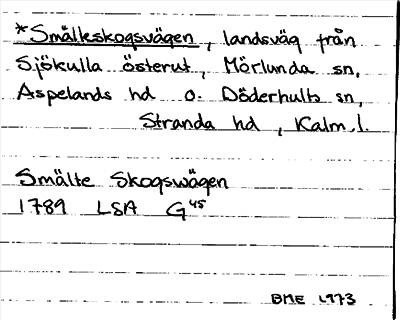 *Smälleskogsvägen, landsväg från
Sjökulla österut, Mörlunda sn,
Aspelands hd o. Döderhults sn,
Stranda hd, Kalm. l.
Smälte Skogswägen
1789 LSA G45
BME 1973